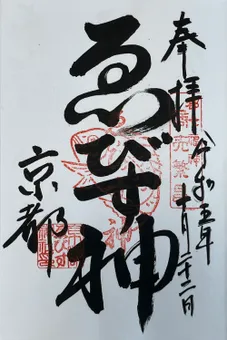 奉拝
令和五年
十月二十二日
ゑびす神
京都